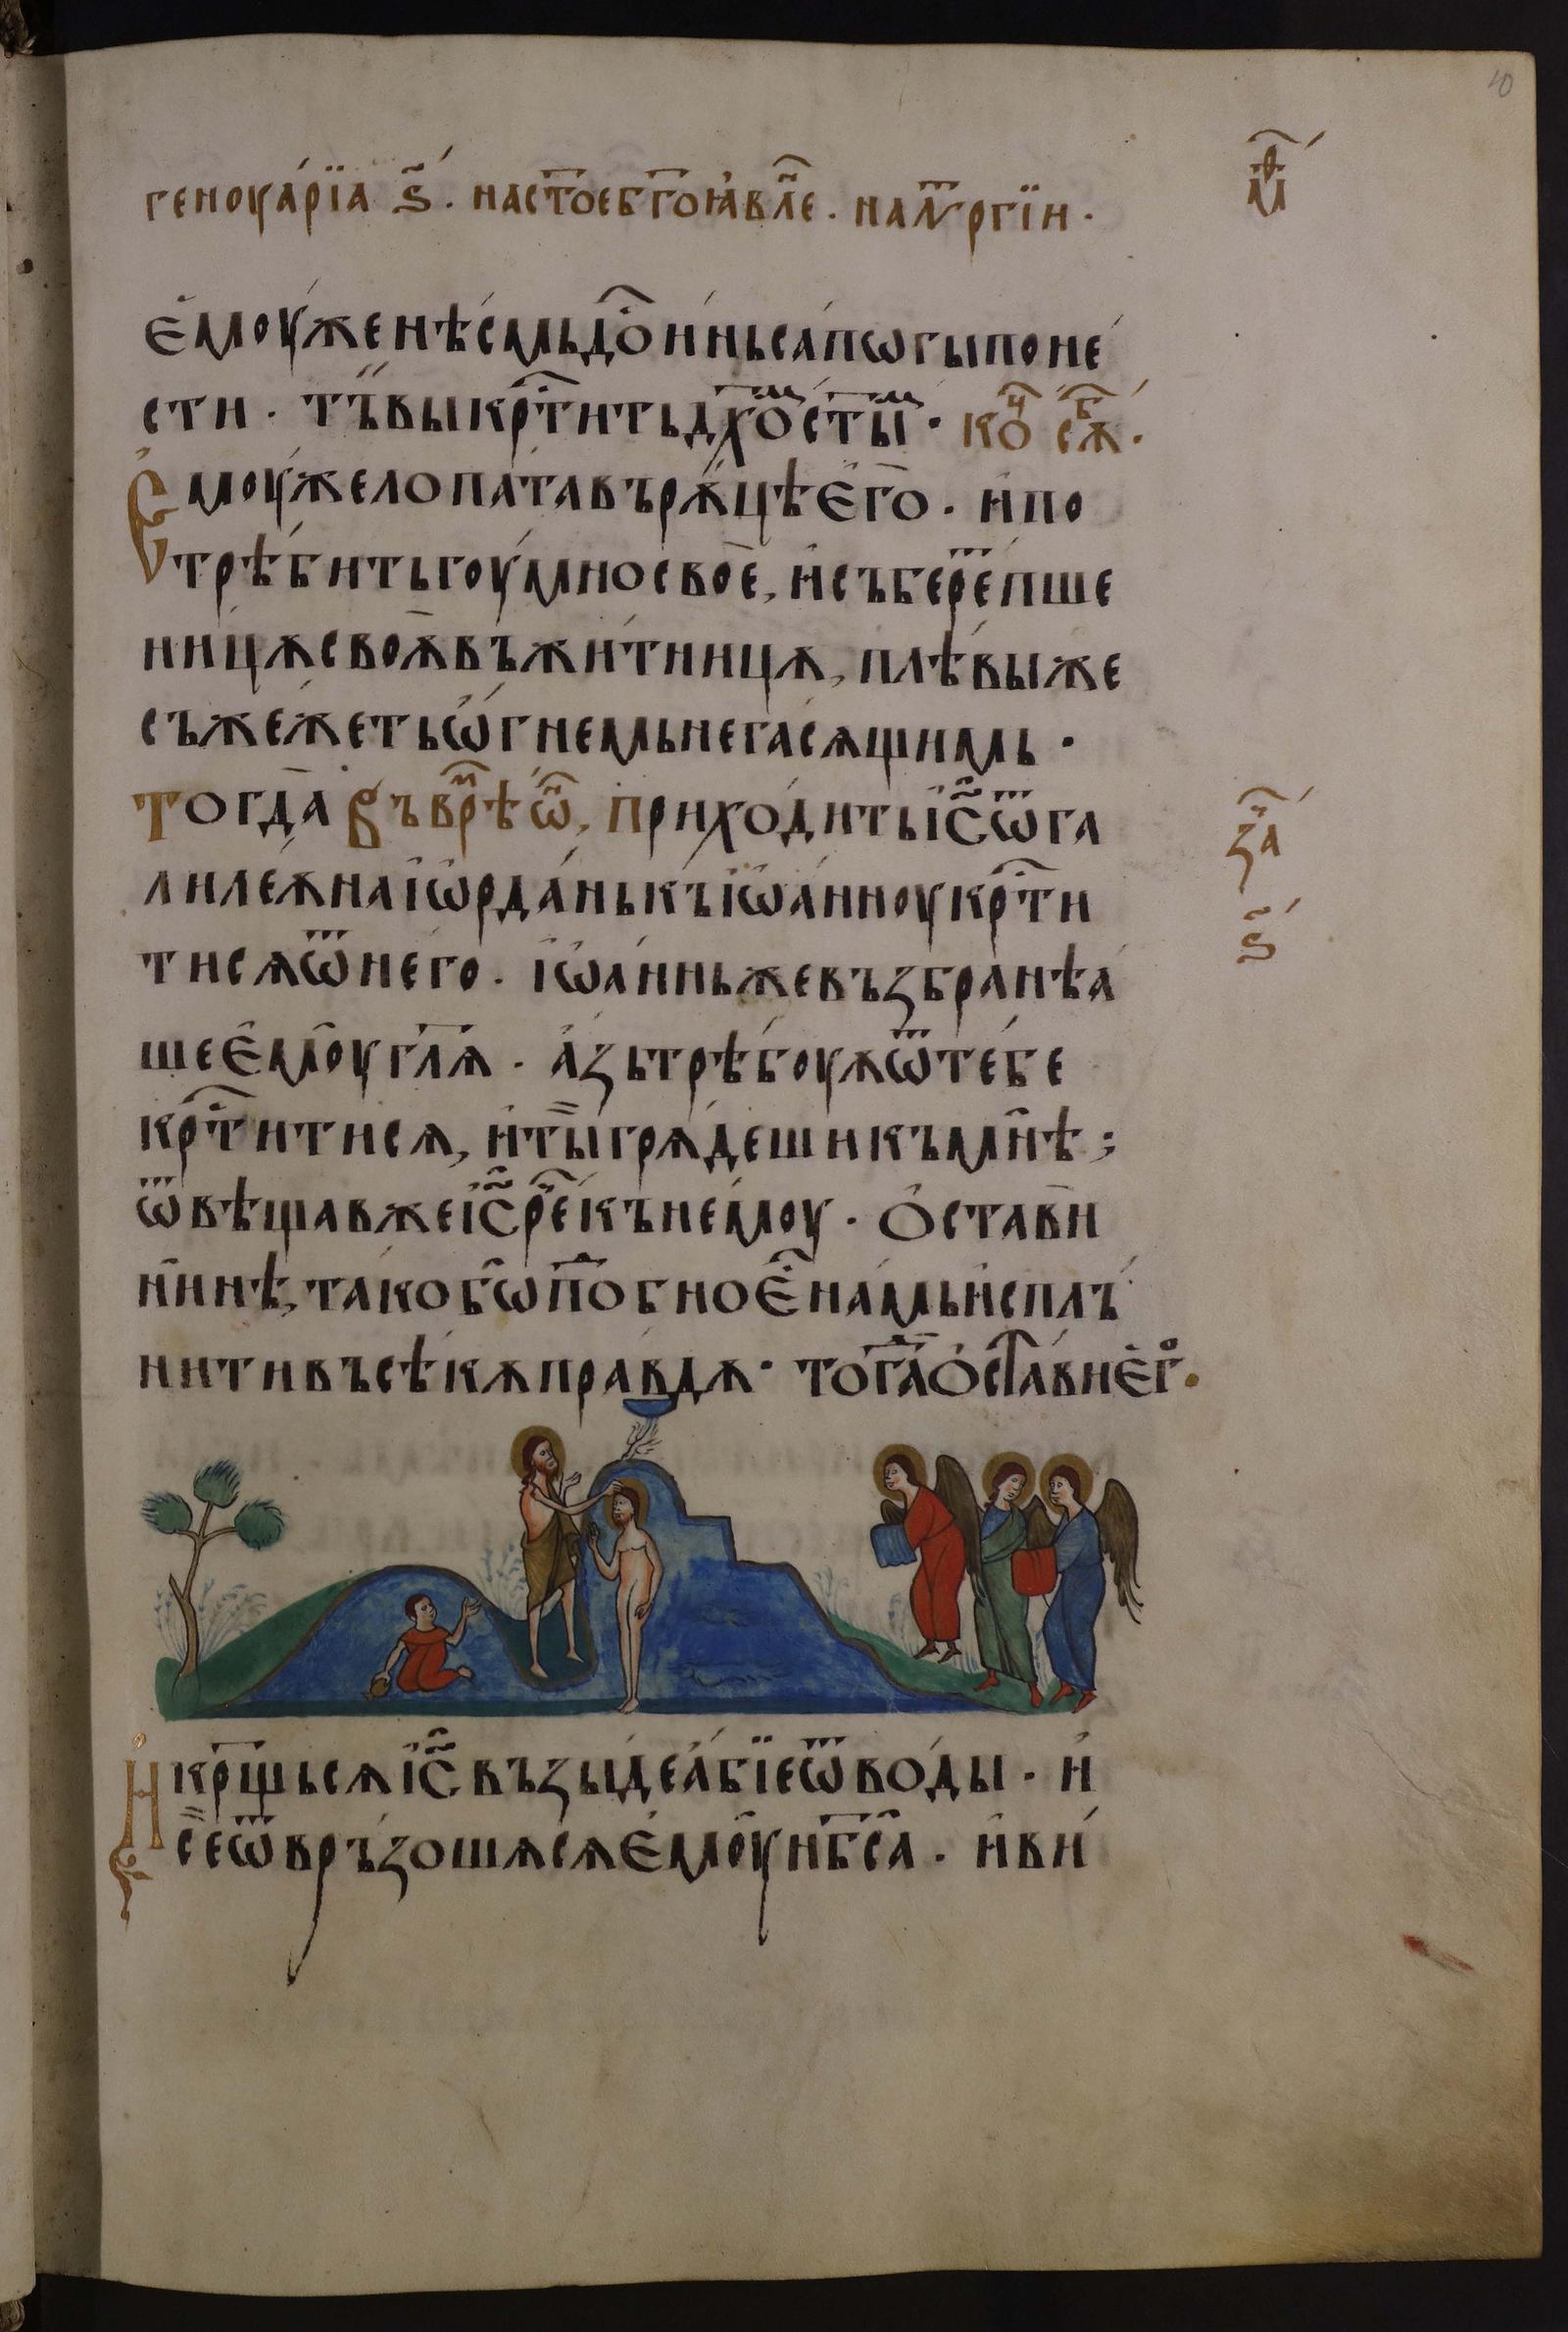 10
геноуа́рїа ѕ҃. на ст҃ое бг҃оꙗ́вле. на лтⷭ҇ргїи.
мⷴ
е҆моу́же нѣ́смь до́инь сапѡгы поне
сти. тъ́ вы крⷭ҇тить дх҃омь ст҃ыимь. коⷰ҇ сѫⷠ҇.
Е҆моу́же лопа́та въ рѫ́цѣ е҆го̀. и҆ по
трѣ́бить гоумно своѐ, и҆ събере́ть пше
ни́цѫ своѫ̀ въ жи́тницѫ, плѣ́вы же
съжеже́ть ѡ҆гнемь негасѧщимь.
Тогда̀ Въ врⷨѣ ѡⷩ҇, Приходить і҆с҃ ѿ га
лиле́ѫ на і҆ѡрда́нь къ і҆ѡа́нноу крⷭ҇ти
тисѧ ѿ него. і҆ѡа́ннь же възбранѣа́
заⷱ҇
ѕ҃
ше е҆моу̀ гл҃ѧ. а҆́зь трѣ́боуѫ ѿ те́бе
крⷭ҇титисѧ, и҆ ты̀ грѧ́деши къ мнѣ̀;
ѿвѣщав же і҆с҃ рⷱ҇е къ немоу. о҆стави
нн҃нѣ, та́ко бѡ̀ поⷣбно е҆ⷭ҇ на́мь и҆сплъ́
нити въсѣ́кѫ пра́вдѫ. тоⷢ҇да о҆ста́ви е҆гⷪ҇.
И҆ крⷭ҇щьсѧ і҆с҃ възы́де а҆́бїе ѿ воды. и҆
сѐ ѿвръ́зошѧсѧ е҆моу̀ нб҃са̀. и҆ ви́